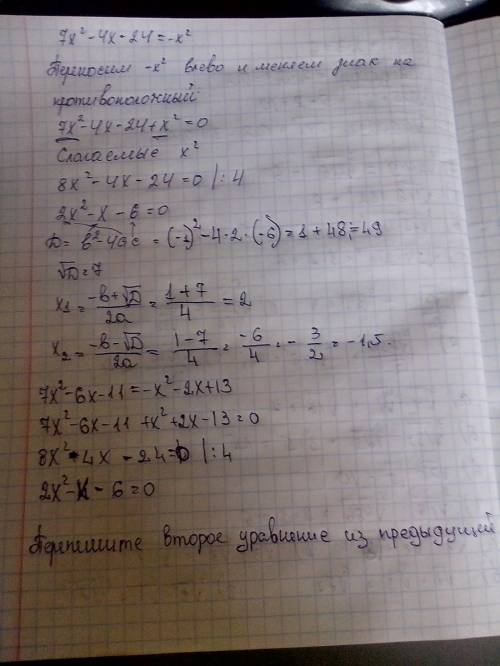 7x² - 4x - 24 = -x²
Переносим -x² влево и меняем знак на
противоположный:
7x² - 4x - 24 + x² = 0
Слагаемые x²
8x² - 4x - 24 = 0 |: 4
2x² - x - 6 = 0
D = b² - 4ac = (-1)² - 4 · 2 · (-6) = 1 + 48 = 49
√D = 7
x₁ = (-b + √D)/2a = (1 + 7)/4 = 2
x₂ = (-b - √D)/2a = (1 - 7)/4 = -6/4 = -3/2 = -1,5.
7x² - 6x - 11 = -x² - 2x + 13
7x² - 6x - 11 + x² + 2x - 13 = 0
8x² - 4x - 24 = 0 |: 4
2x² - x - 6 = 0
Перепишите второе уравнение из предыдущей